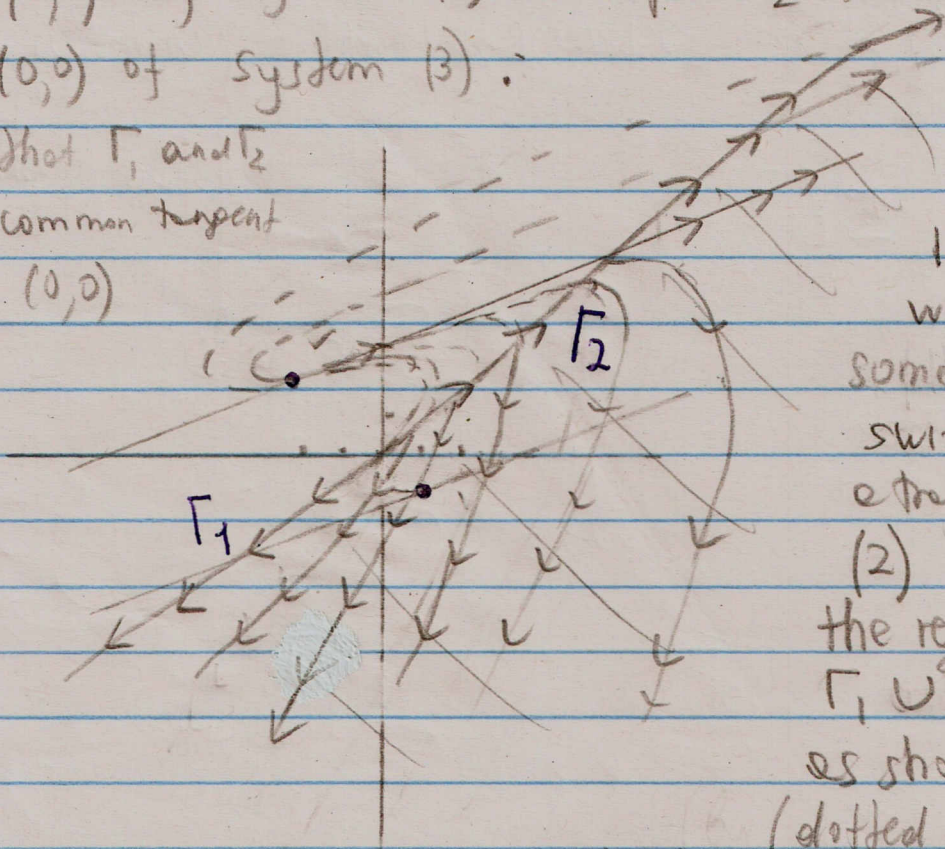 (0,0) of system (3) :
That Γ₁ and Γ₂
common tangent
(0,0)
Γ₂
Γ₁
w
some
swi
etra
(2)
the re
Γ₁ ∪
as sho
(dotted